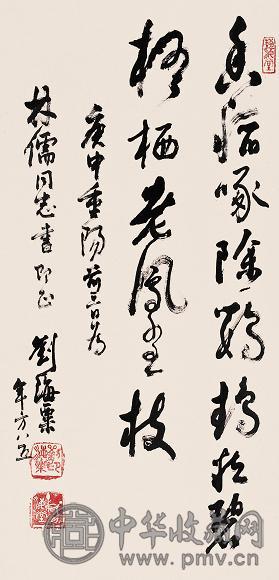 香稻啄餘鸚鵡粒碧
梧栖老鳳皇枝
庚申重陽前三日為
林儒同志書即正
劉海粟
年方八五
中华收藏网
www.pmv.cn